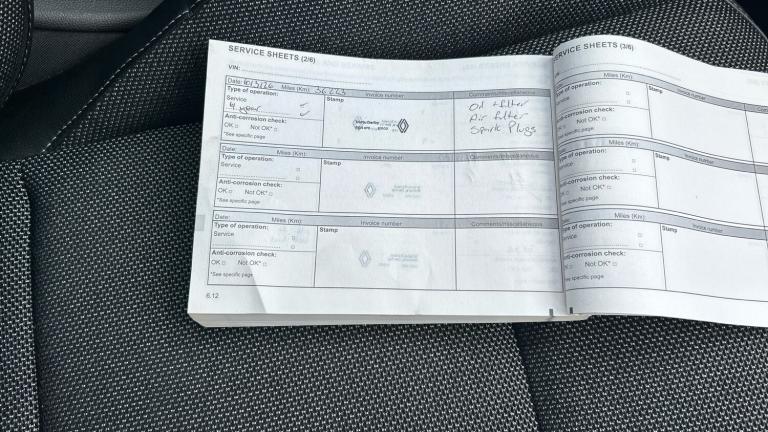 SERVICE SHEETS (2/6)
VIN:
Date: 10/3/26 Miles (Km): 36663 Invoice number: Comments/miscellaneous
Type of operation:
Service
4 year
Anti-corrosion check:
OK Not OK*
*See specific page
Stamp
Oil filter
Air filter
Spark Plugs
Date: Miles (Km): Invoice number: Comments/miscellaneous
Type of operation:
Service
Anti-corrosion check:
OK Not OK*
*See specific page
Stamp
Date: Miles (Km): Invoice number: Comments/miscellaneous
Type of operation:
Service
Anti-corrosion check:
OK Not OK*
*See specific page
Stamp
6.12
SERVICE SHEETS (3/6)
Miles (Km): Invoice number:
Type of operation:
Service
Anti-corrosion check:
Not OK*
*See specific page
Stamp
Miles (Km): Invoice number
Type of operation:
Service
Anti-corrosion check:
OK Not OK*
*See specific page
Stamp
Miles (Km): Invoice number
Type of operation:
Service
Anti-corrosion check:
OK Not OK*
*See specific page
Stamp